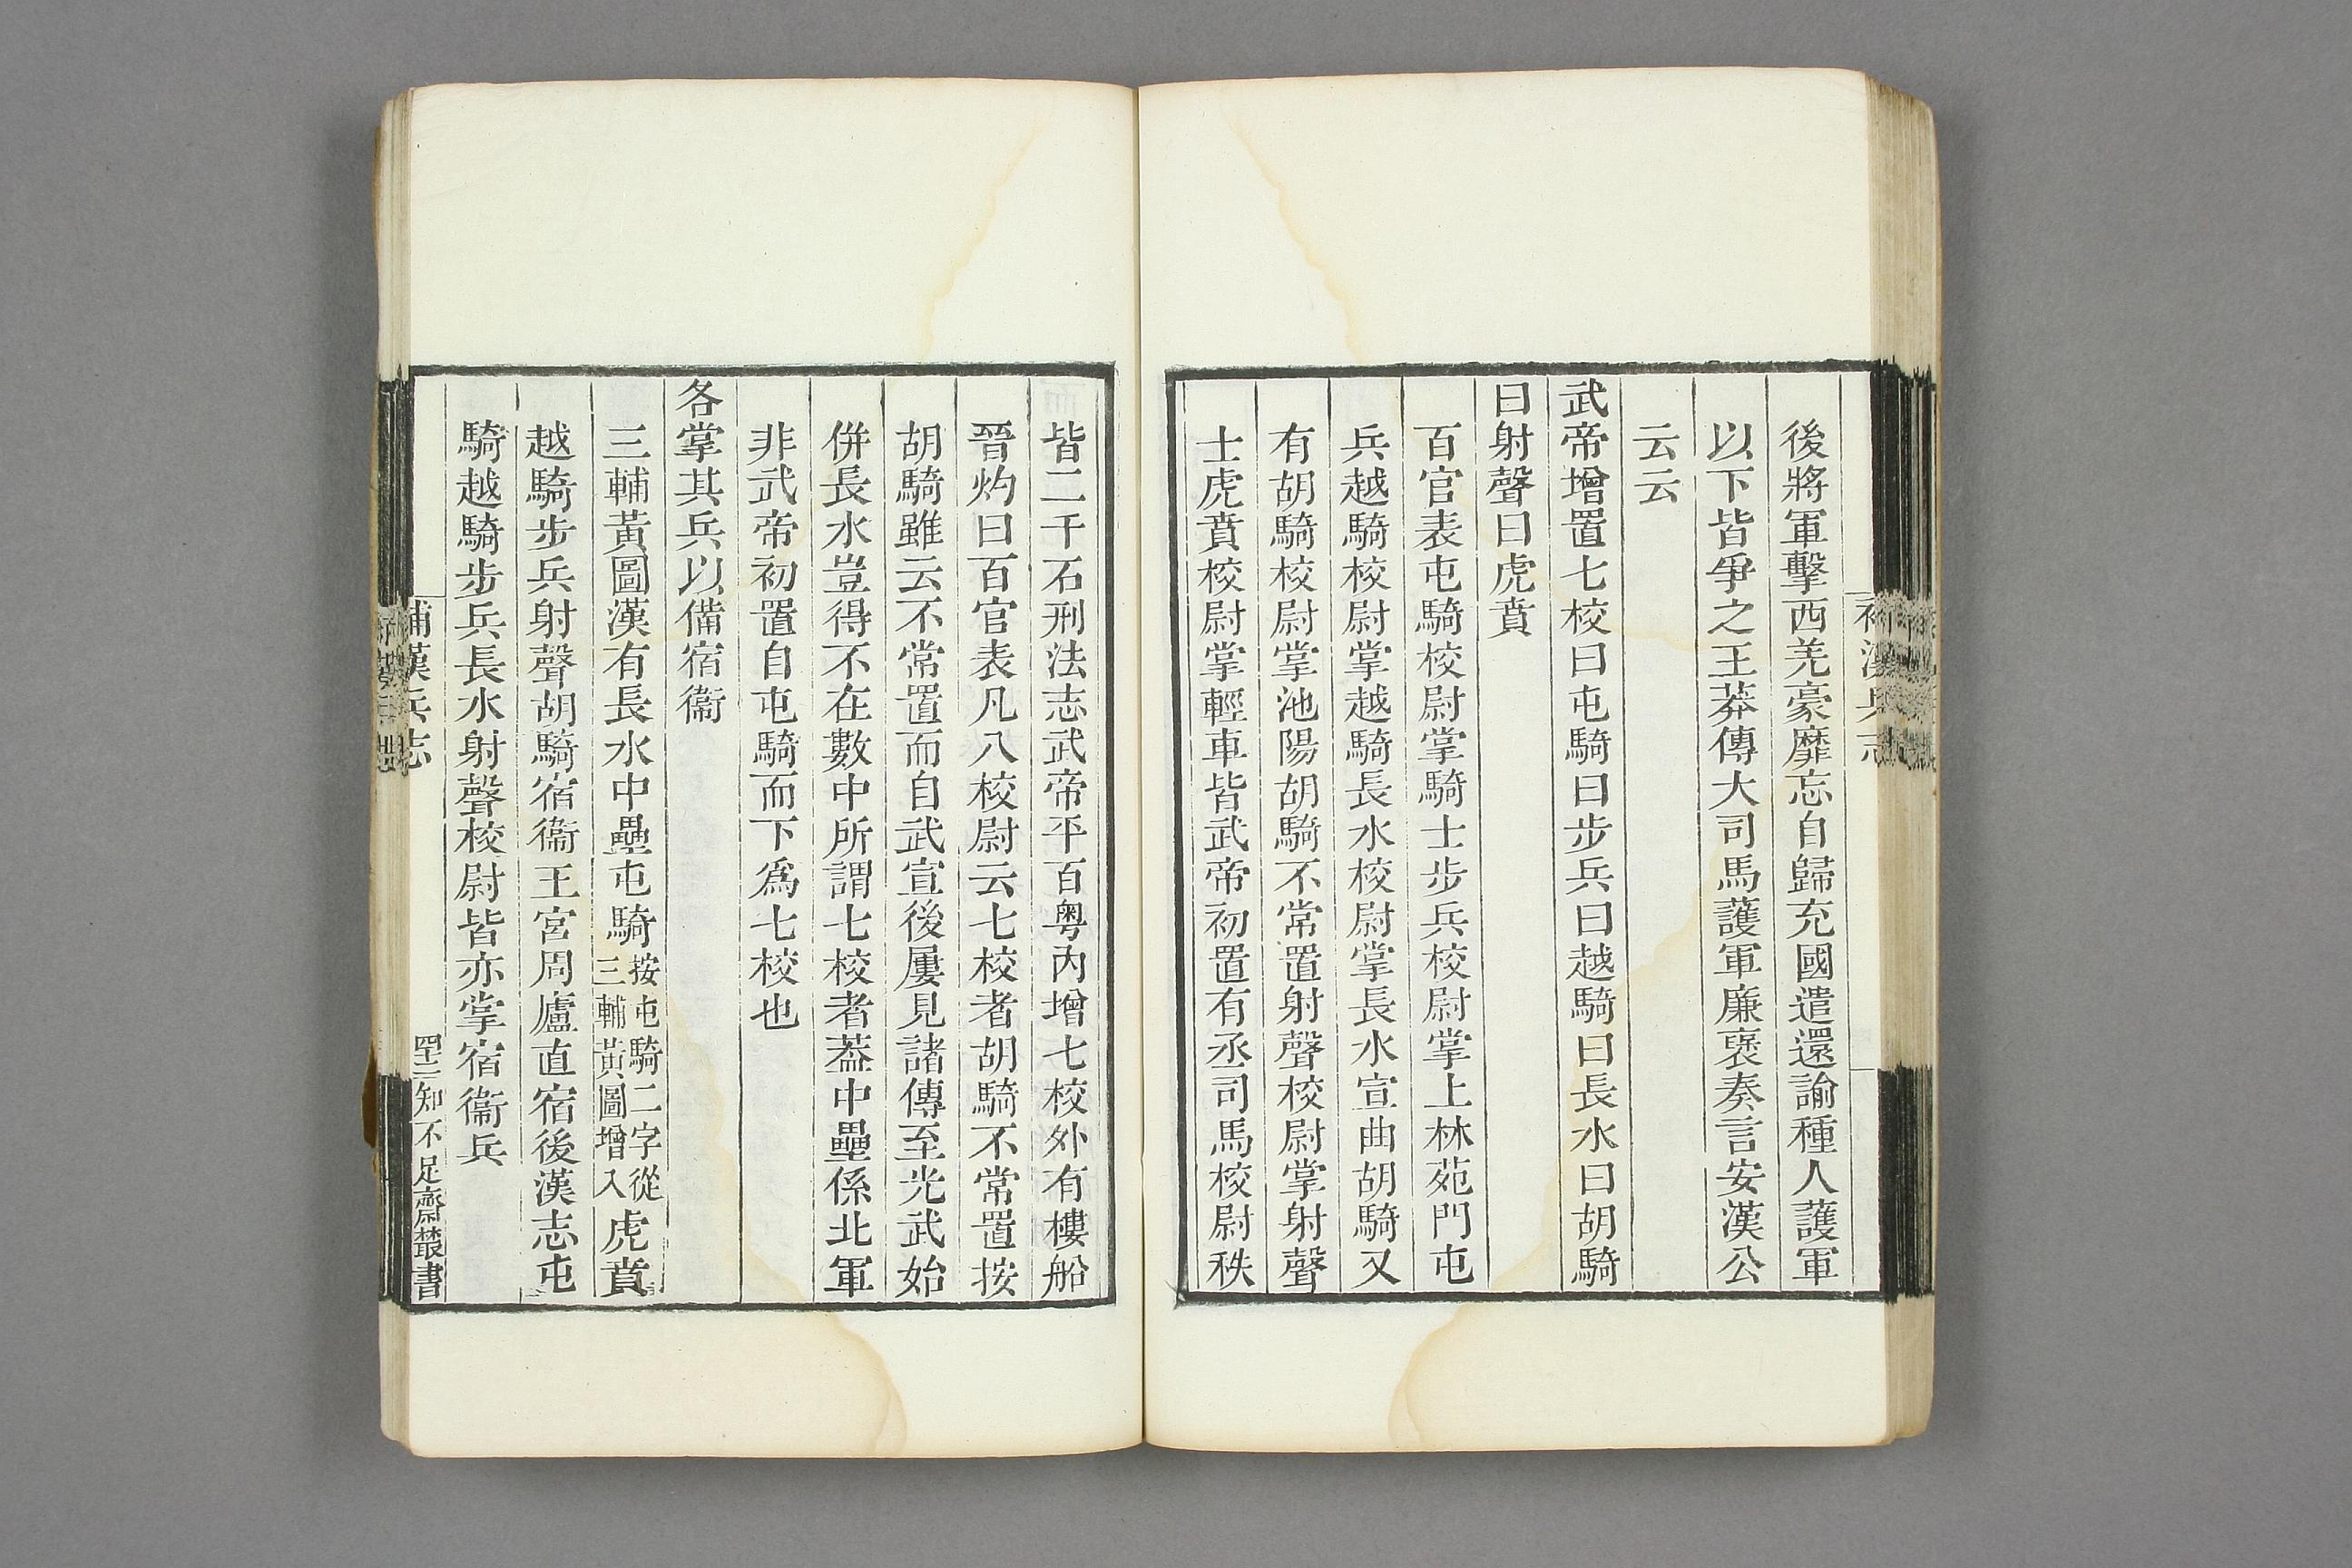 後將軍擊西羌豪靡忘自歸充國遣還諭種人護軍
以下皆爭之王莽傳大司馬護軍廉褒奏言安漢公
云云
武帝增置七校曰屯騎曰步兵曰越騎曰長水曰胡騎
曰射聲曰虎賁
百官表屯騎校尉掌騎士步兵校尉掌上林苑門屯
兵越騎校尉掌越騎長水校尉掌長水宣曲胡騎又
有胡騎校尉掌池陽胡騎不常置射聲校尉掌射聲
士虎賁校尉掌輕車皆武帝初置有丞司馬校尉秩
皆二千石刑法志武帝平百粤內增七校外有樓船
晉灼曰百官表凡八校尉云七校者胡騎不常置按
胡騎雖云不常置而自武宣後屢見諸傳至光武始
併長水豈得不在數中所謂七校者葢中壘係北軍
非武帝初置自屯騎而下爲七校也
各掌其兵以備宿衞
三輔黃圖漢有長水中壘屯騎按屯騎二字從三輔黃圖增入虎賁
越騎步兵射聲胡騎宿衞王宮周廬直宿後漢志屯
騎越騎步兵長水射聲校尉皆亦掌宿衞兵
補漢兵志
知不足齋叢書